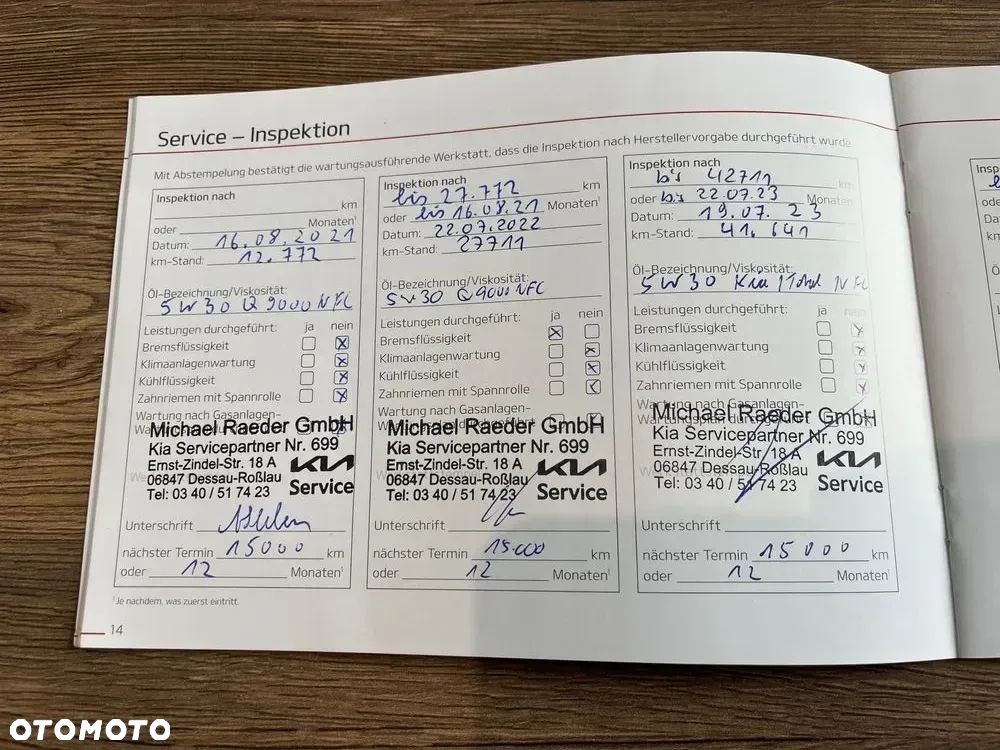 Service – Inspektion
Mit Abstempelung bestätigt die wartungsausführende Werkstatt, dass die Inspektion nach Herstellervorgabe durchgeführt wurde
Inspektion nach
km
oder Monaten¹
Datum: 16.08.2021
km-Stand: 12.772
Öl-Bezeichnung/Viskosität:
5W30 Q9000 NFC
Leistungen durchgeführt: ja nein
Bremsflüssigkeit X
Klimaanlagenwartung X
Kühlflüssigkeit X
Zahnriemen mit Spannrolle X
Wartung nach Gasanlagen-
Michael Raeder GmbH
Kia Servicepartner Nr. 699
Ernst-Zindel-Str. 18 A
06847 Dessau-Roßlau
Tel: 03 40 / 51 74 23
KIA
Service
Unterschrift
nächster Termin 15000 km
oder 12 Monaten¹
Inspektion nach
bis 27.772 km
oder bis 16.08.21 Monaten¹
Datum: 22.07.2022
km-Stand: 27711
Öl-Bezeichnung/Viskosität:
5W30 Q9000 NFC
Leistungen durchgeführt: ja nein
Bremsflüssigkeit X
Klimaanlagenwartung X
Kühlflüssigkeit X
Zahnriemen mit Spannrolle X
Wartung nach Gasanlagen-
Michael Raeder GmbH
Kia Servicepartner Nr. 699
Ernst-Zindel-Str. 18 A
06847 Dessau-Roßlau
Tel: 03 40 / 51 74 23
KIA
Service
Unterschrift
nächster Termin 15.000 km
oder 12 Monaten¹
Inspektion nach
bis 42711 km
oder bis 22.07.23
Datum: 19.07.23
km-Stand: 41.641
Öl-Bezeichnung/Viskosität:
5W30 Kia/Total NFC
Leistungen durchgeführt: ja nein
Bremsflüssigkeit X
Klimaanlagenwartung X
Kühlflüssigkeit X
Zahnriemen mit Spannrolle X
Wartung nach Gasanlagen-
Wartungsplan durchgeführt
Michael Raeder GmbH
Kia Servicepartner Nr. 699
Ernst-Zindel-Str. 18 A
06847 Dessau-Roßlau
Tel: 03 40 / 51 74 23
KIA
Service
Unterschrift
nächster Termin 15000 km
oder 12 Monaten¹
¹Je nachdem, was zuerst eintritt.
14
OTOMOTO